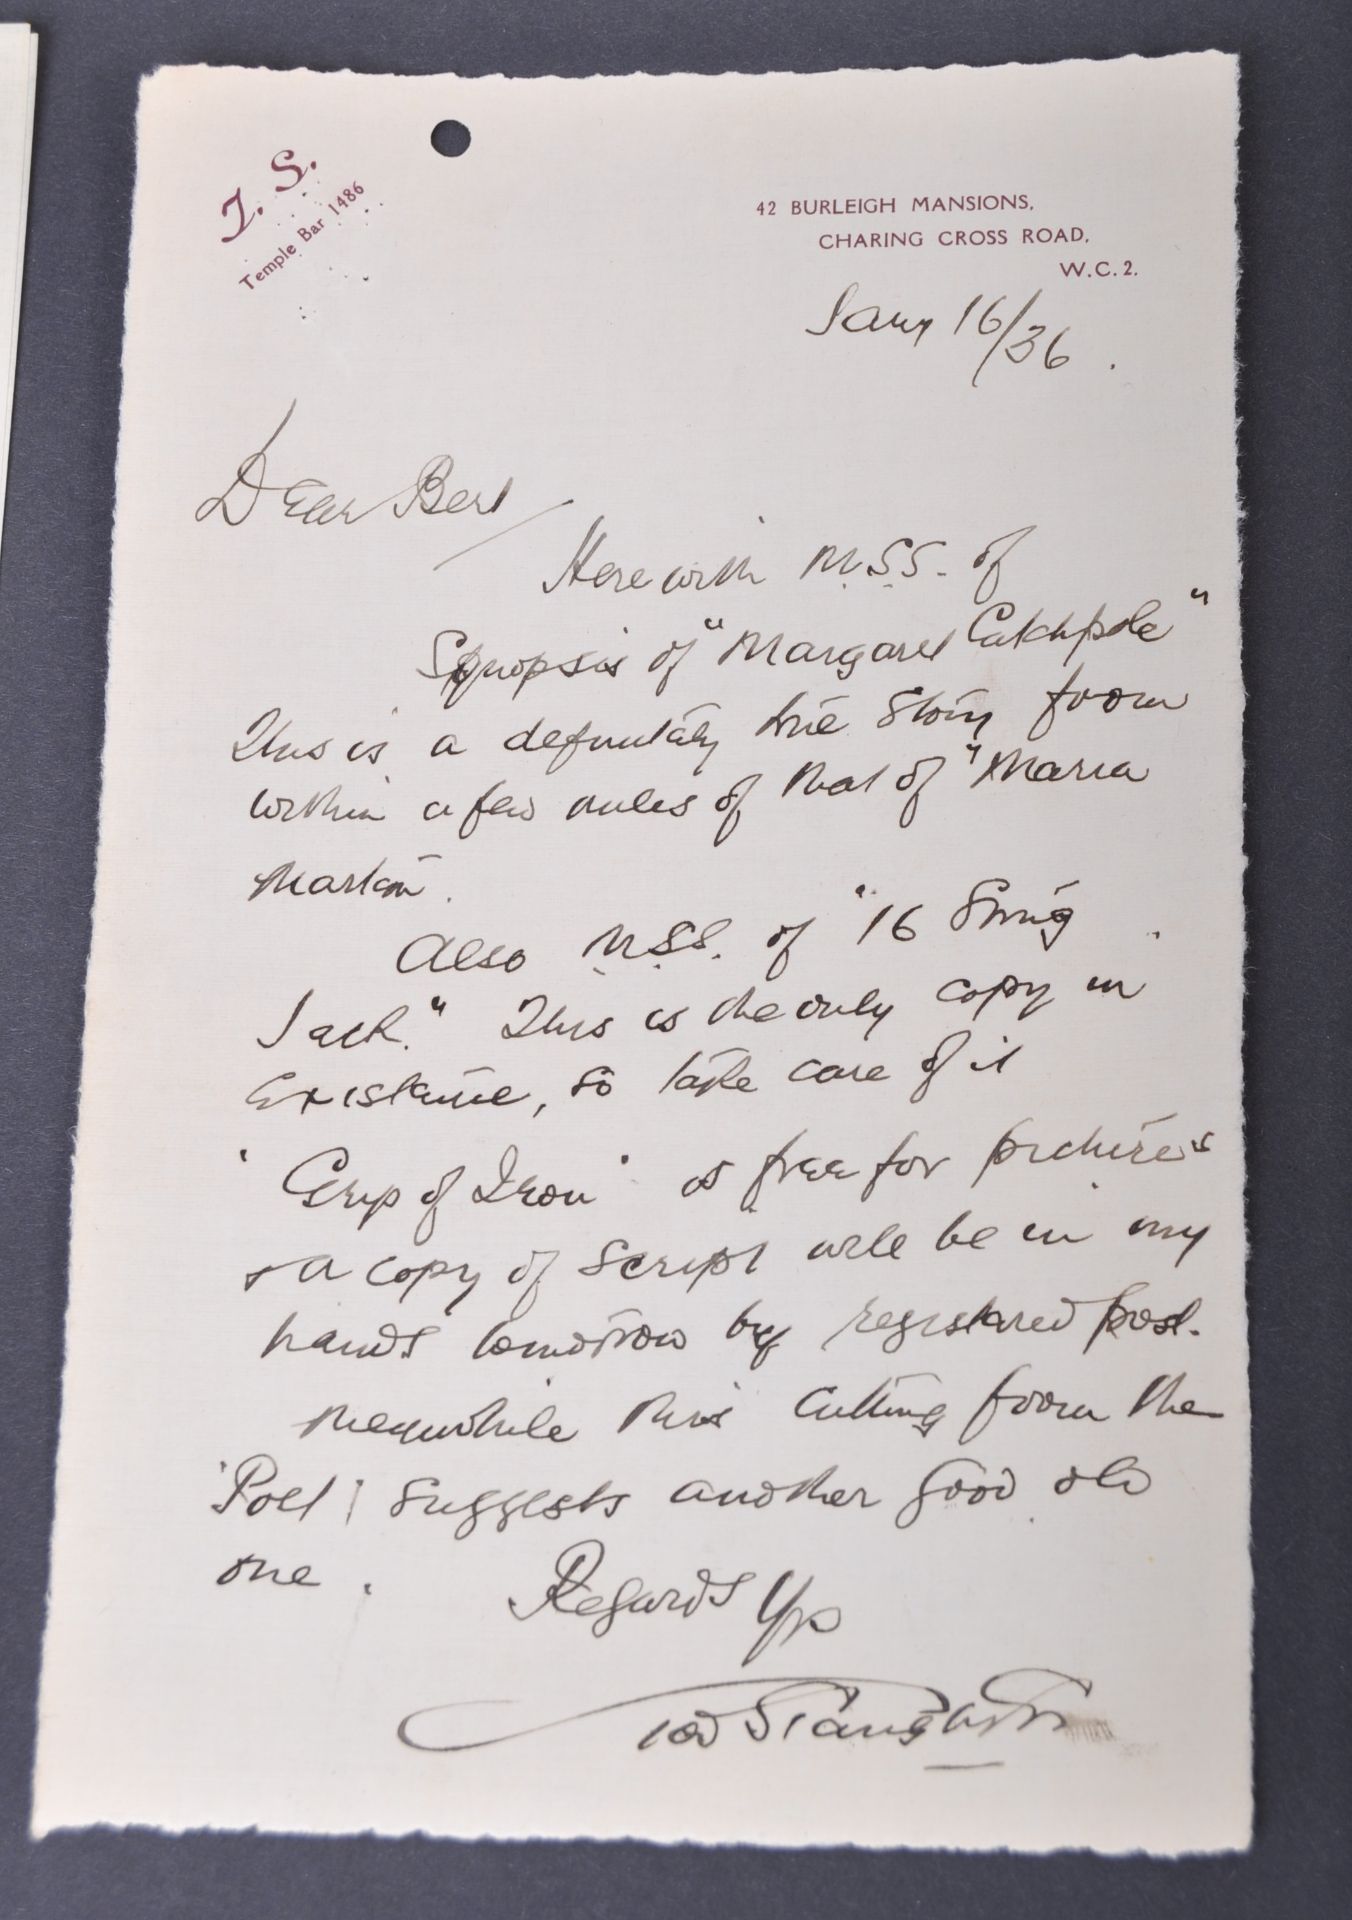 T. S.
Temple Bar 1486
42 BURLEIGH MANSIONS,
CHARING CROSS ROAD,
W.C.2.
Jany 16/36.
Dear Bert
Herewith M.S.S. of
Synopsis of "Margaret Catchpole"
This is a definitely true story from
within a few miles of that of "Maria
Marten.
Also M.S.S. of "16 String
Jack." This is the only copy in
Existence, so take care of it
'Grip of Iron' is free for pictures
& a copy of script will be in my
hands tomorrow by registered post.
Meanwhile this cutting from the
'Poet' suggests another good old
one. Regards Yrs
Tod Slaughter